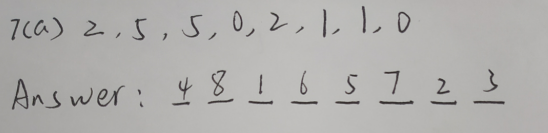 7(a) 2, 5, 5, 0, 2, 1, 1, 0
Answer: 4 8 1 6 5 7 2 3